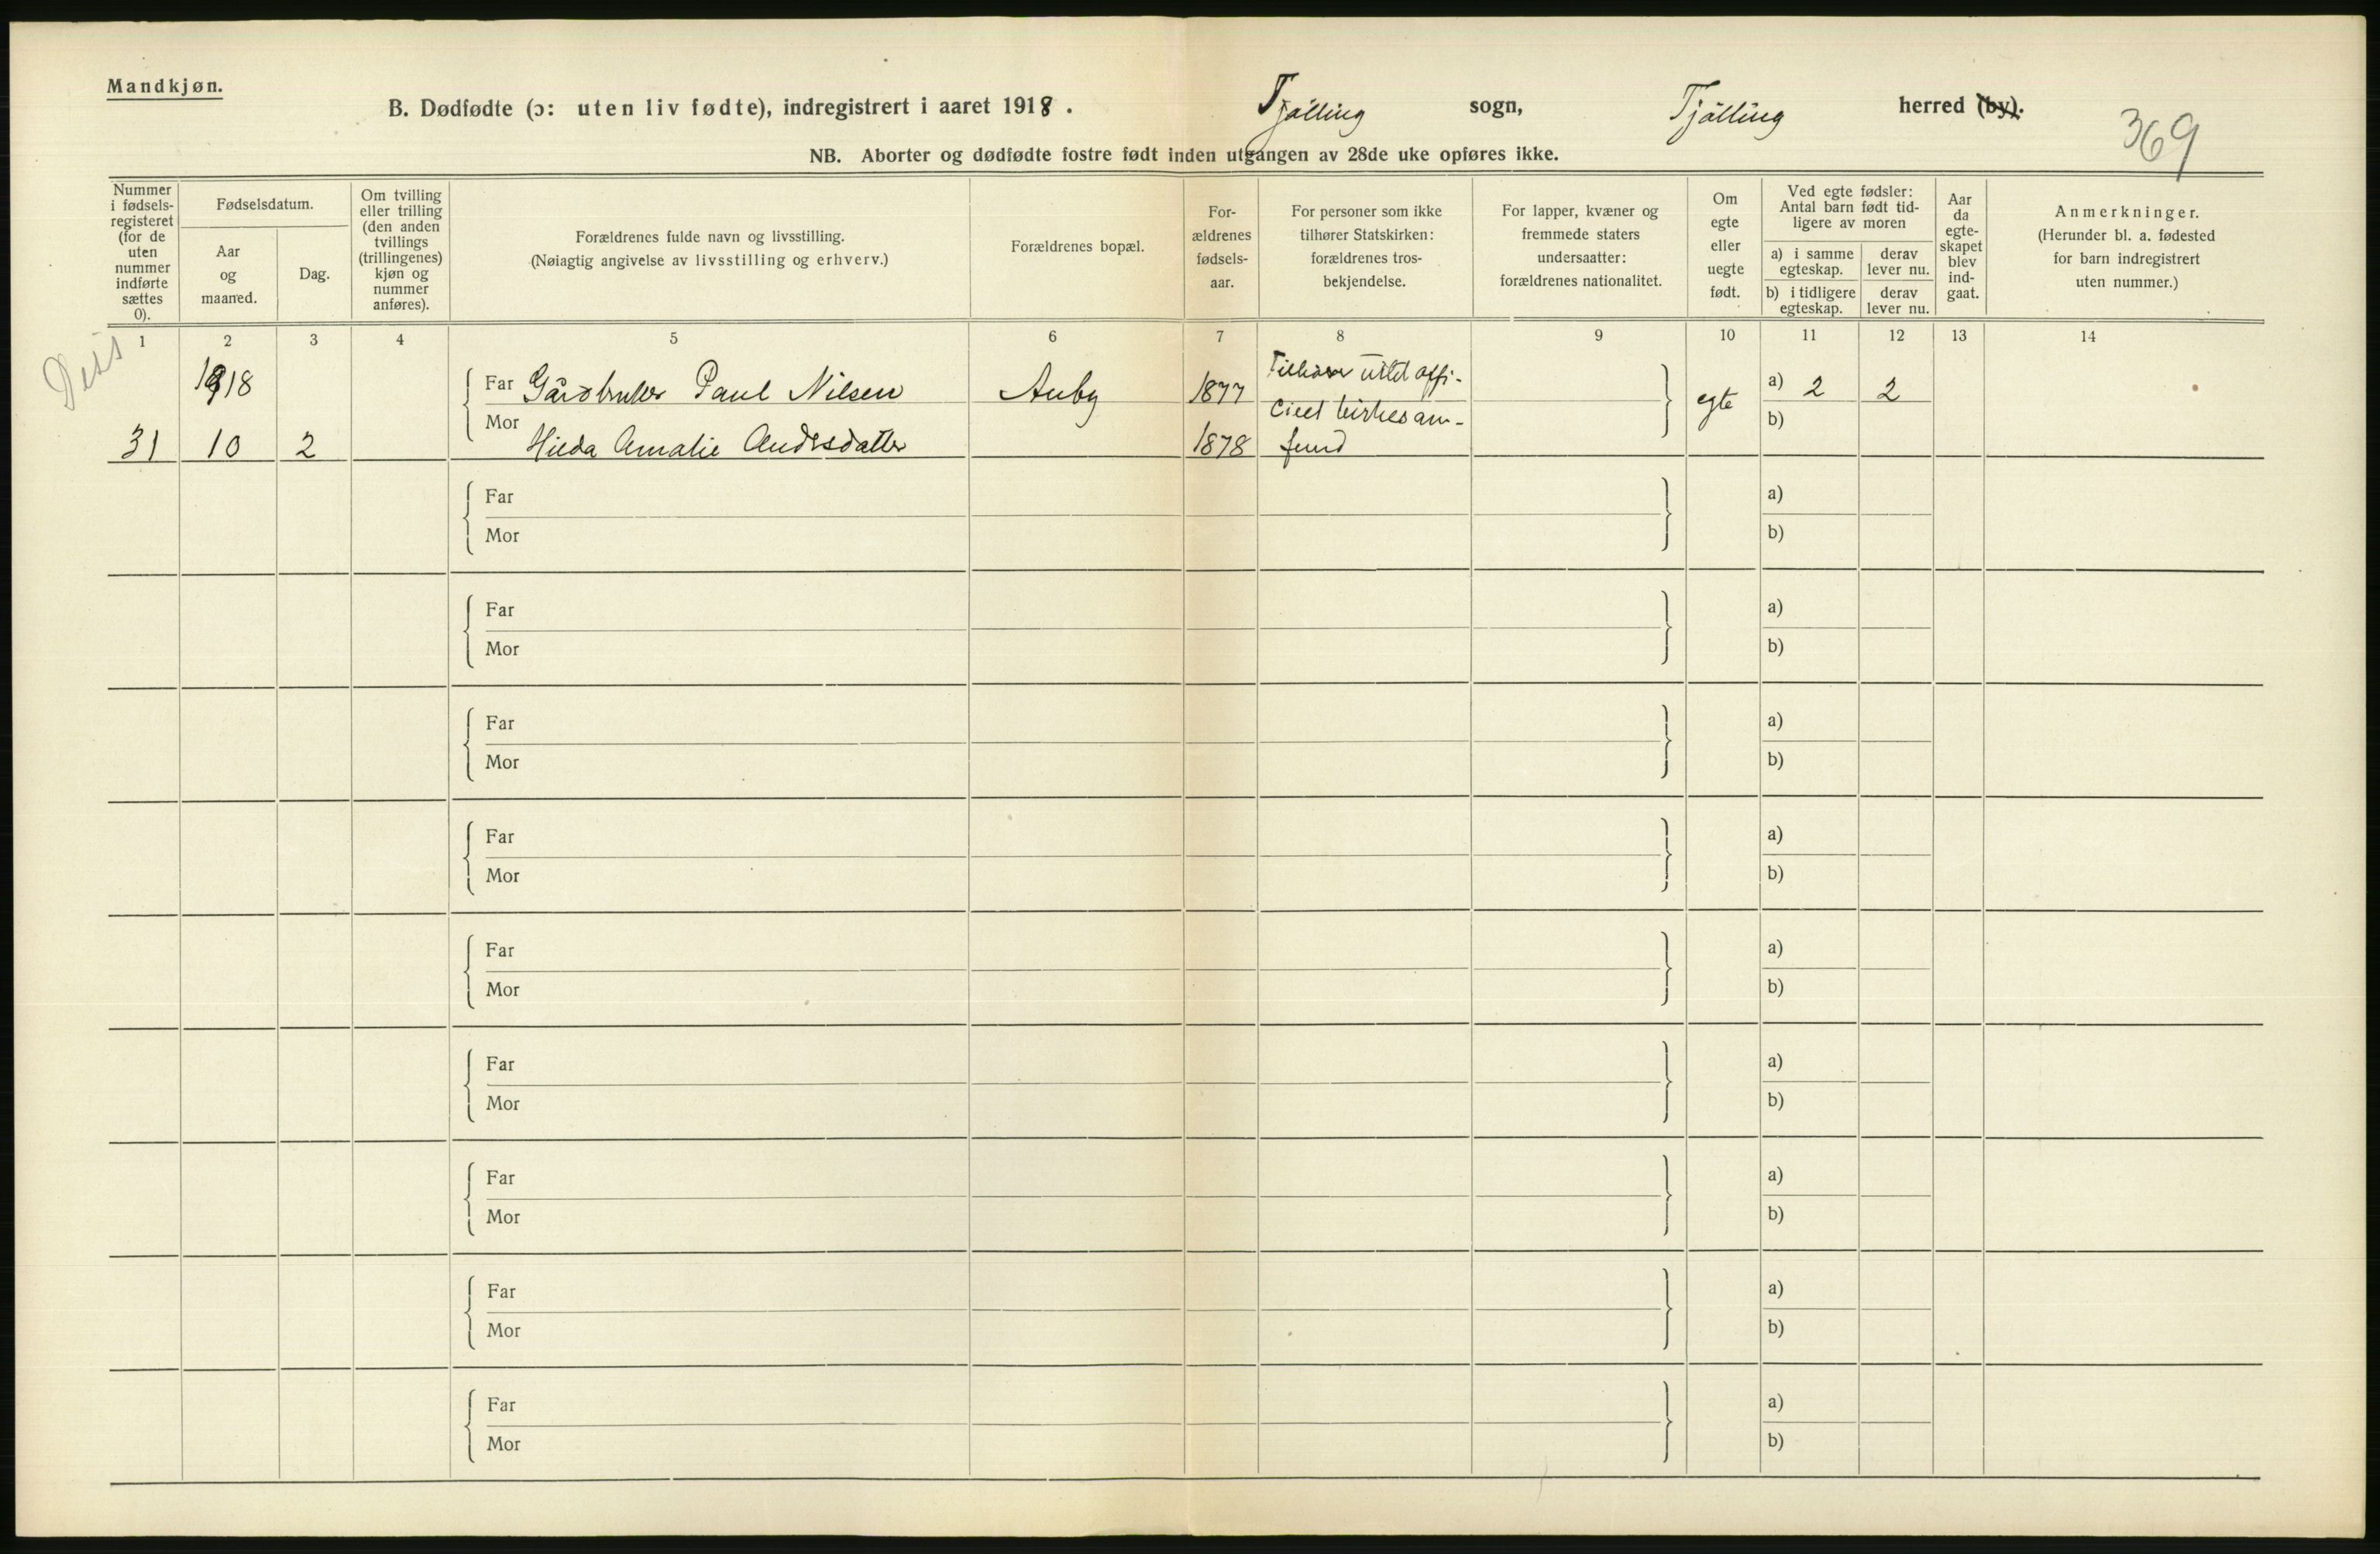 Mandkjøn.
B. Dødfødte (ɔ: uten liv fødte), indregistrert i aaret 1918.
Tjølling sogn, Tjølling herred (by).
369
NB. Aborter og dødfødte fostre født inden utgangen av 28de uke opføres ikke.
Nummer
i fødsels-
registeret
(for de
uten
nummer
indførte
sættes
0).
Fødselsdatum.
Aar
og
maaned.
Dag.
Om tvilling
eller trilling
(den anden
tvillings
(trillingenes)
kjøn og
nummer
anføres).
Forældrenes fulde navn og livsstilling.
(Nøiagtig angivelse av livsstilling og erhverv.)
Forældrenes bopæl.
For-
ældrenes
fødsels-
aar.
For personer som ikke
tilhører Statskirken:
forældrenes tros-
bekjendelse.
For lapper, kvæner og
fremmede staters
undersaatter:
forældrenes nationalitet.
Om
egte
eller
uegte
født.
Ved egte fødsler:
Antal barn født tid-
ligere av moren
a) i samme
egteskap.
derav
lever nu.
b) i tidligere
egteskap.
derav
lever nu.
Aar
da
egte-
skapet
blev
ind-
gaat.
Anmerkninger.
(Herunder bl. a. fødested
for barn indregistrert
uten nummer.)
1 2 3 4 5 6 7 8 9 10 11 12 13 14
Diss
1918
Far Gårdbruker Paul Nilsen Auby 1877
Tilhører intet offi-
cielt kirkesam-
fund
egte a) 2 2
Mor b)
31 10 2 Hilda Amalie Andersdatter 1878
Far a)
Mor b)
Far a)
Mor b)
Far a)
Mor b)
Far a)
Mor b)
Far a)
Mor b)
Far a)
Mor b)
Far a)
Mor b)
Far a)
Mor b)
Far a)
Mor b)